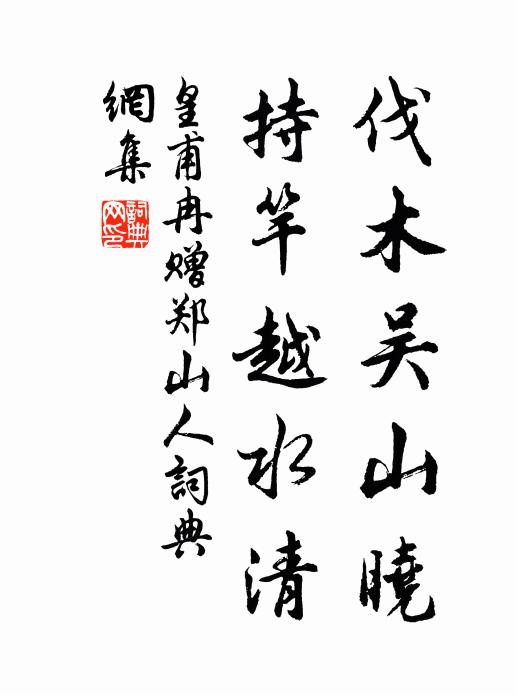 伐木吴山曉
持竿越水清
皇甫冉赠郑山人詞典
網集
詞典網印